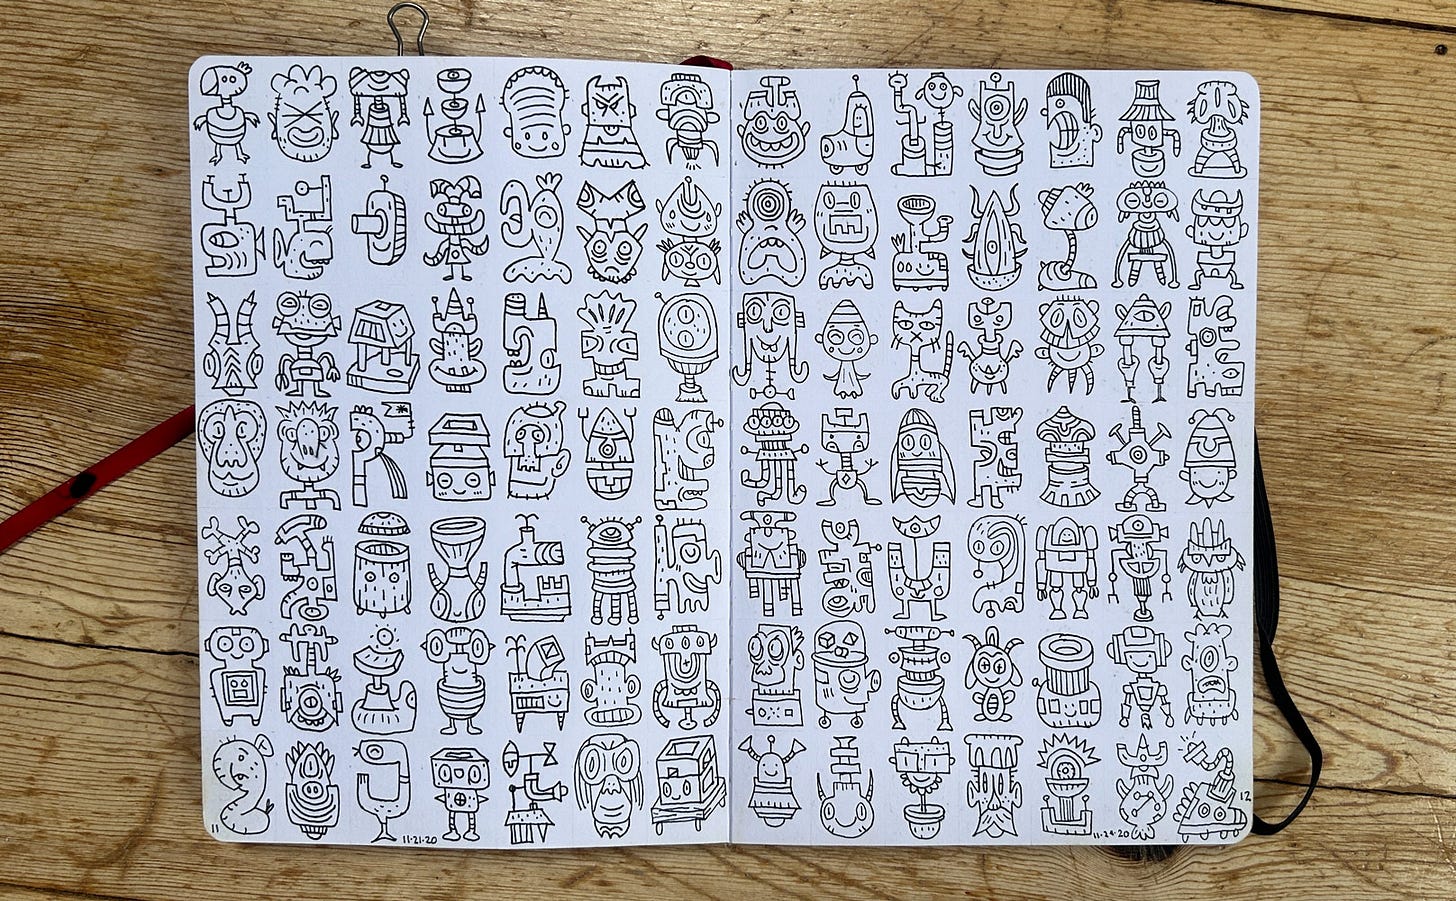 11
11·21·20
11·24·20
12